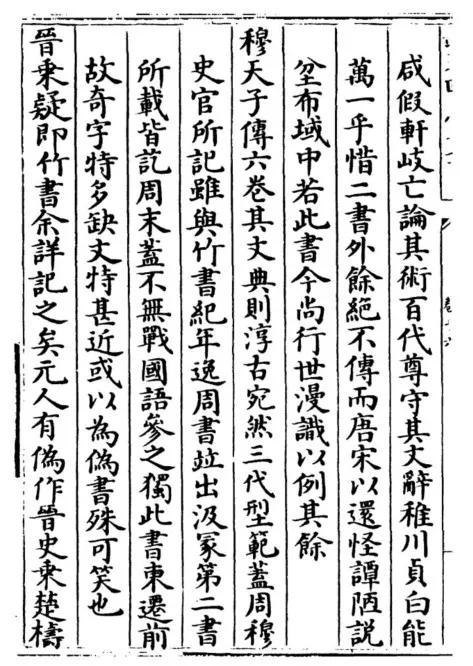 咸假軒岐亡論其術百代尊守其文辭稚川貞白能
萬一乎惜二書外餘絕不傳而唐宋以還怪譚陋説
坌布域中若此書今尚行世漫識以例其餘
穆天子傳六卷其文典則淳古宛然三代型範蓋周穆
史官所記雖與竹書紀年逸周書竝出汲冢第二書
所載皆訖周末蓋不無戰國語參之獨此書東遷前
故奇字特多缺文特甚近或以為偽書殊可笑也
晉乘疑即竹書余詳記之矣元人有偽作晉史乘楚檮